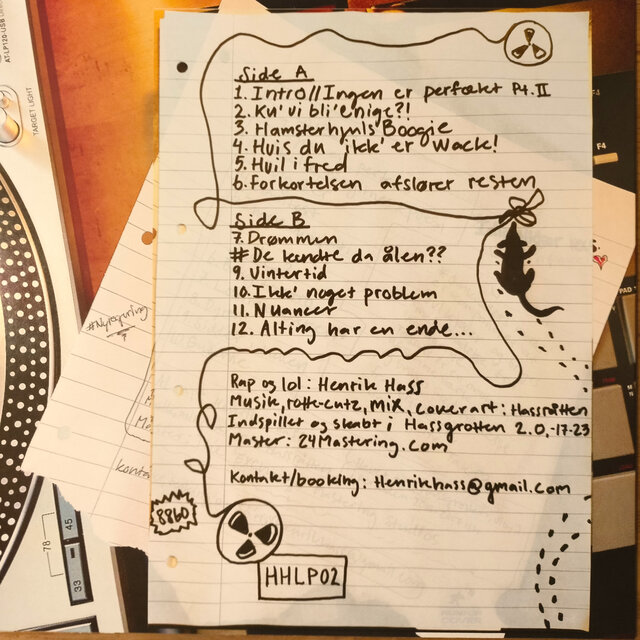 AT-LP120-USB
TARGET LIGHT
Side A
1. Intro//Ingen er perfekt Pt. II
2. Ku' vi bli' enige?!
3. Hamsterhjuls Boogie
4. Hvis du ikk' er Wack!
5. Hvil i fred
6. Forkortelsen afslører resten
F4
Side B
7. Drømmen
# De kendte da ålen??
9. Vintertid
10. Ikk' noget problem
11. Nuancer
12. Alting har en ende...
Rap og lol: Henrik Hass
Musik, rotte-cutz, mix, coverart: Hassrotten
Indspillet og skabt i Hassgrotten 2.0,-17-23
Master: 24Mastering.com
Kontakt/booking: Henrikhass@gmail.com
8860
HHLP02
78
33
45